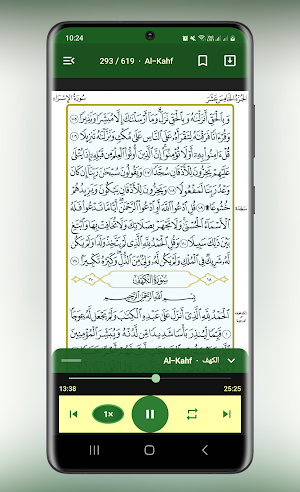 10:24
293 / 619 · Al-Kahf
سُورَةُ الإِسْرَاءِ
الجُزْءُ الخَامِسَ عَشَرَ
وَبِالْحَقِّ أَنزَلْنَاهُ وَبِالْحَقِّ نَزَلَ وَمَا أَرْسَلْنَاكَ إِلَّا مُبَشِّرًا وَنَذِيرًا ١٠٥
وَقُرْآنًا فَرَقْنَاهُ لِتَقْرَأَهُ عَلَى النَّاسِ عَلَى مُكْثٍ وَنَزَّلْنَاهُ تَنزِيلًا ١٠٦
قُلْ آمِنُوا بِهِ أَوْ لَا تُؤْمِنُوا إِنَّ الَّذِينَ أُوتُوا الْعِلْمَ مِن قَبْلِهِ إِذَا يُتْلَى
عَلَيْهِمْ يَخِرُّونَ لِلْأَذْقَانِ سُجَّدًا ١٠٧ وَيَقُولُونَ سُبْحَانَ رَبِّنَا إِن كَانَ
وَعْدُ رَبِّنَا لَمَفْعُولًا ١٠٨ وَيَخِرُّونَ لِلْأَذْقَانِ يَبْكُونَ وَيَزِيدُهُمْ
خُشُوعًا ۩ ١٠٩ قُلِ ادْعُوا اللَّهَ أَوِ ادْعُوا الرَّحْمَنَ أَيًّا مَّا تَدْعُوا فَلَهُ
سجدة
الْأَسْمَاءُ الْحُسْنَى وَلَا تَجْهَرْ بِصَلَاتِكَ وَلَا تُخَافِتْ بِهَا وَابْتَغِ
بَيْنَ ذَلِكَ سَبِيلًا ١١٠ وَقُلِ الْحَمْدُ لِلَّهِ الَّذِي لَمْ يَتَّخِذْ وَلَدًا وَلَمْ يَكُن
لَّهُ شَرِيكٌ فِي الْمُلْكِ وَلَمْ يَكُن لَّهُ وَلِيٌّ مِّنَ الذُّلِّ وَكَبِّرْهُ تَكْبِيرًا ١١١
سُورَةُ الكَهْفِ
بِسْمِ اللَّهِ الرَّحْمَنِ الرَّحِيمِ
الْحَمْدُ لِلَّهِ الَّذِي أَنزَلَ عَلَى عَبْدِهِ الْكِتَابَ وَلَمْ يَجْعَل لَّهُ عِوَجًا ١
قَيِّمًا لِّيُنذِرَ بَأْسًا شَدِيدًا مِّن لَّدُنْهُ وَيُبَشِّرَ الْمُؤْمِنِينَ
Al-Kahf · الكهف
13:38
25:25
1×